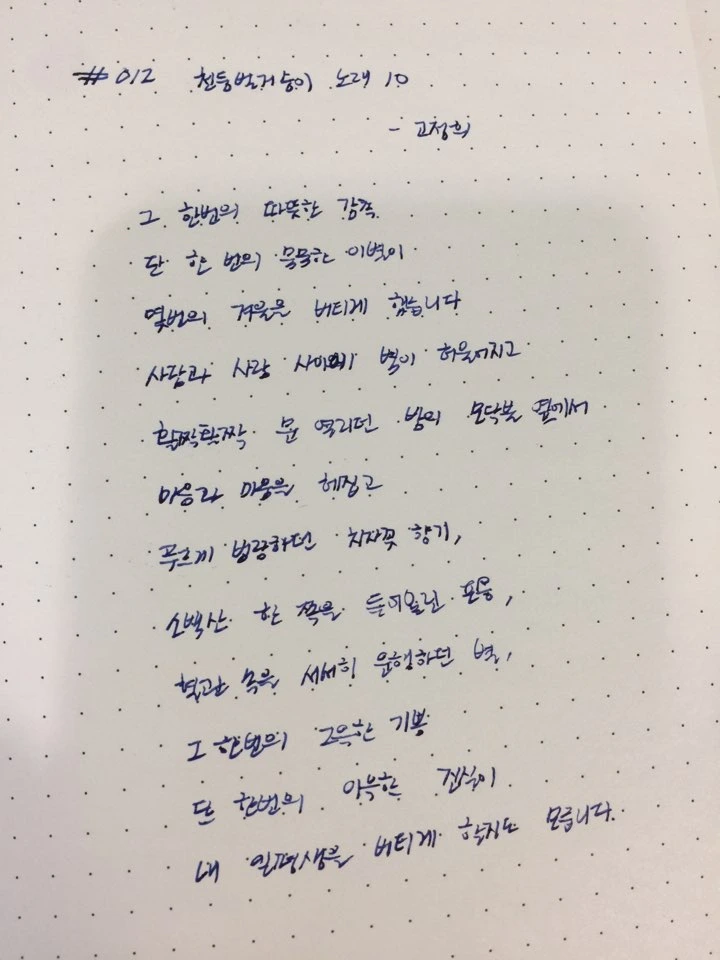 #012 천둥벌거숭이 노래 10
- 고정희
그 한번의 따뜻한 감촉
단 한 번의 묵묵한 이별이
몇번의 겨울을 버티게 했습니다
사람과 사람 사이에 벽이 허물어지고
활짝활짝 문 열리던 밤의 모닥불 옆에서
마음과 마음을 헤집고
푸르게 범람하던 치자꽃 향기,
소백산 한 쪽을 들어올린 포옹,
혈관 속을 서서히 운행하던 별,
그 한번의 그윽한 기쁨
단 한번의 이윽한 진실이
내 일평생을 버티게 할지도 모릅니다.